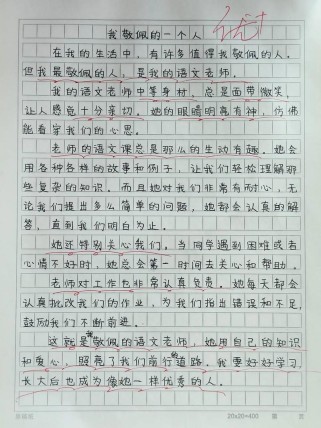 我敬佩的一个人
优+
在我的生活中，有许多值得我敬佩的人。
但我最敬佩的人，是我的语文老师。
我的语文老师中等身材，总是面带微笑，
让人感觉十分亲切。她的眼睛明亮有神，仿佛
能看穿我们的心思。
老师的语文课总是那么的生动有趣。她会
用各种各样的故事和例子，让我们轻松理解那
些复杂的知识。而且她对我们非常有耐心，无
论我们提出多么简单的问题，她都会认真的解
答，直到我们明白为止。
她还特别关心我们。当同学遇到困难或者
心情不好时，她总会第一时间去关心和帮助。
老师对工作也非常认真负责。她每天都会
认真批改我们的作业，为我们指出错误和不足，
鼓励我们不断前进。
这就是我敬佩的语文老师，她用自己的知识
和爱心，照亮了我们前行的道路。我要好好学习，
长大后也成为像她一样优秀的人。
20x20=400